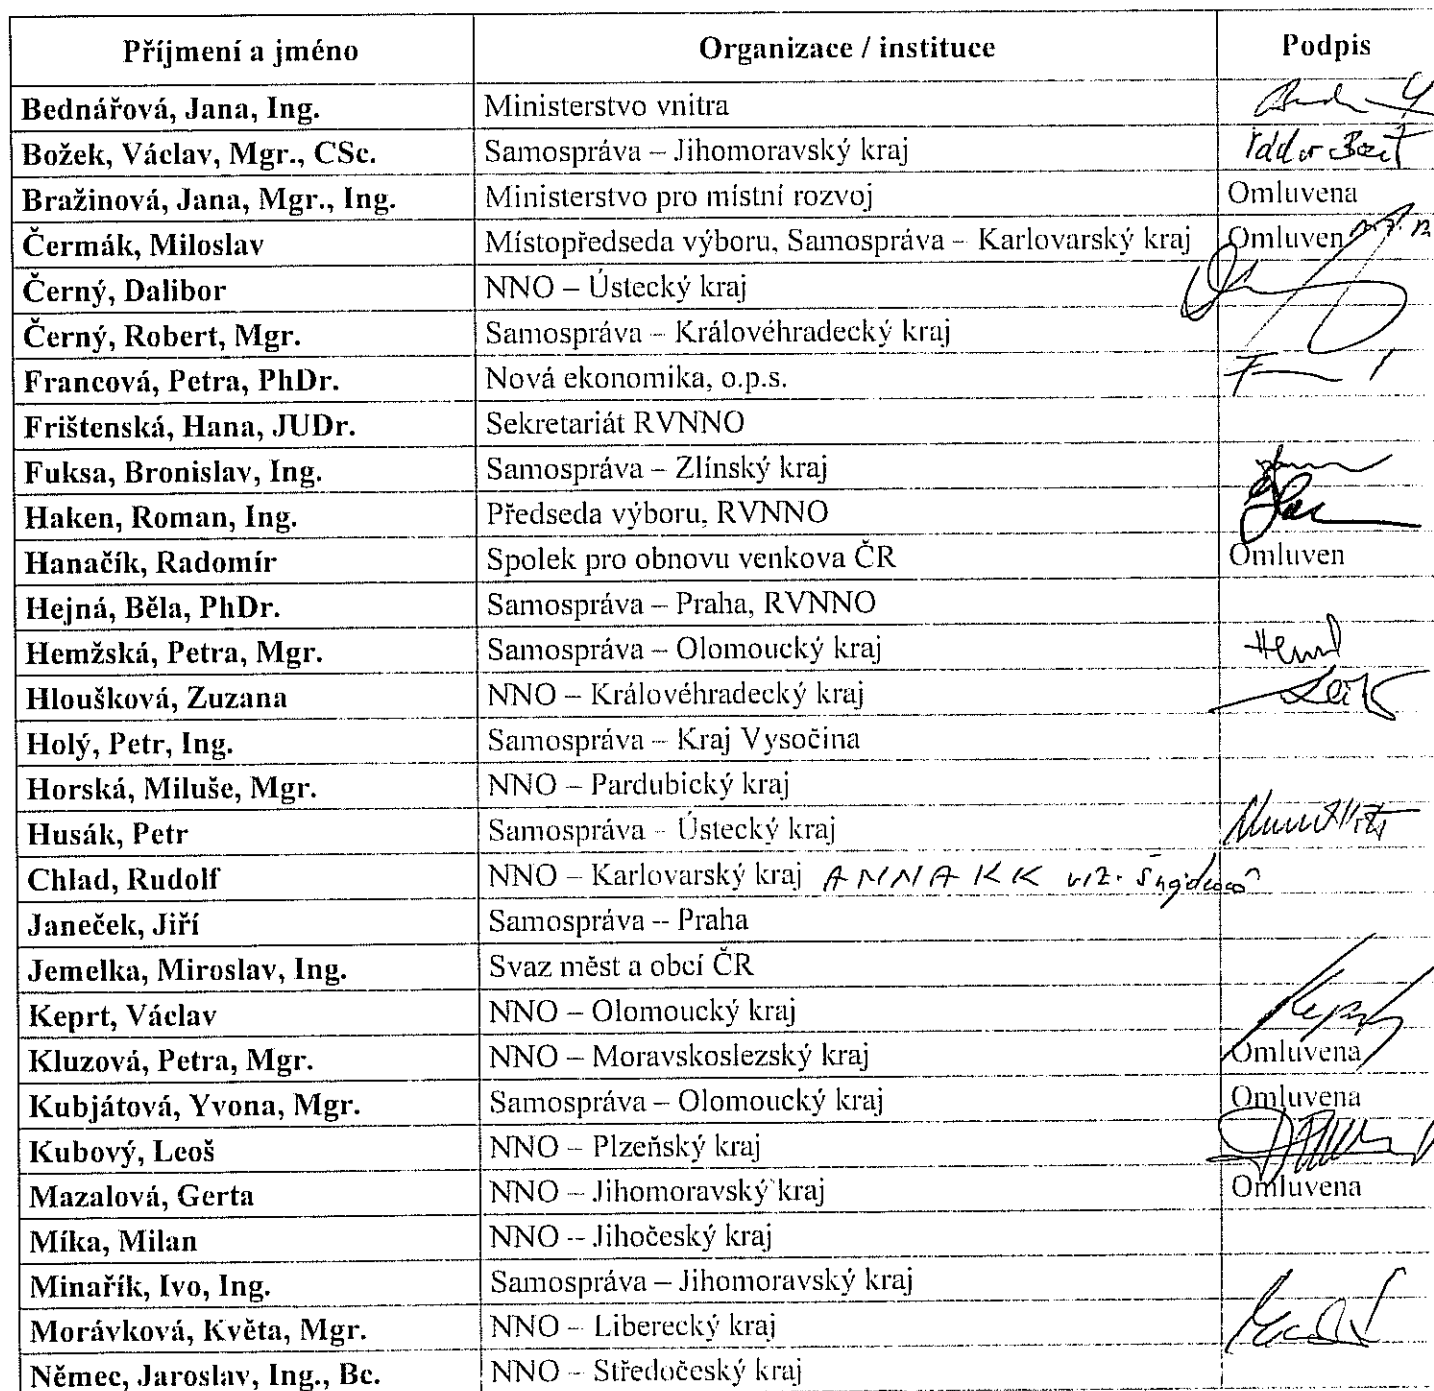 Příjmení a jméno Organizace / instituce Podpis
Bednářová, Jana, Ing. Ministerstvo vnitra
Božek, Václav, Mgr., CSc. Samospráva – Jihomoravský kraj
Bražinová, Jana, Mgr., Ing. Ministerstvo pro místní rozvoj Omluvena
Čermák, Miloslav Místopředseda výboru, Samospráva – Karlovarský kraj Omluven
Černý, Dalibor NNO – Ústecký kraj
Černý, Robert, Mgr. Samospráva – Královéhradecký kraj
Francová, Petra, PhDr. Nová ekonomika, o.p.s.
Frištenská, Hana, JUDr. Sekretariát RVNNO
Fuksa, Bronislav, Ing. Samospráva – Zlínský kraj
Haken, Roman, Ing. Předseda výboru, RVNNO
Hanačík, Radomír Spolek pro obnovu venkova ČR Omluven
Hejná, Běla, PhDr. Samospráva – Praha, RVNNO
Hemžská, Petra, Mgr. Samospráva – Olomoucký kraj
Hloušková, Zuzana NNO – Královéhradecký kraj
Holý, Petr, Ing. Samospráva – Kraj Vysočina
Horská, Miluše, Mgr. NNO – Pardubický kraj
Husák, Petr Samospráva – Ústecký kraj
Chlad, Rudolf NNO – Karlovarský kraj ANNA KK
Janeček, Jiří Samospráva – Praha
Jemelka, Miroslav, Ing. Svaz měst a obcí ČR
Keprt, Václav NNO – Olomoucký kraj
Kluzová, Petra, Mgr. NNO – Moravskoslezský kraj Omluvena
Kubjátová, Yvona, Mgr. Samospráva – Olomoucký kraj Omluvena
Kubový, Leoš NNO – Plzeňský kraj
Mazalová, Gerta NNO – Jihomoravský kraj Omluvena
Míka, Milan NNO – Jihočeský kraj
Minařík, Ivo, Ing. Samospráva – Jihomoravský kraj
Morávková, Květa, Mgr. NNO – Liberecký kraj
Němec, Jaroslav, Ing., Bc. NNO – Středočeský kraj